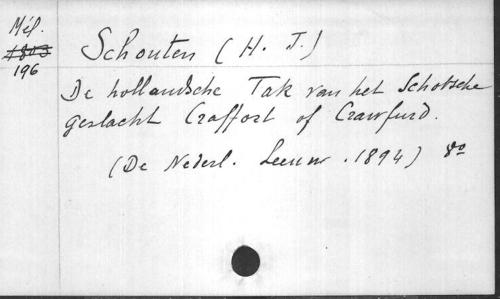 Mél.
1803
196
Schouten (H. J.)
De hollandsche Tak van het Schotsche
geslacht Craffort of Crawfurd.
(De Nederl. Leeuw. 1894) 8º